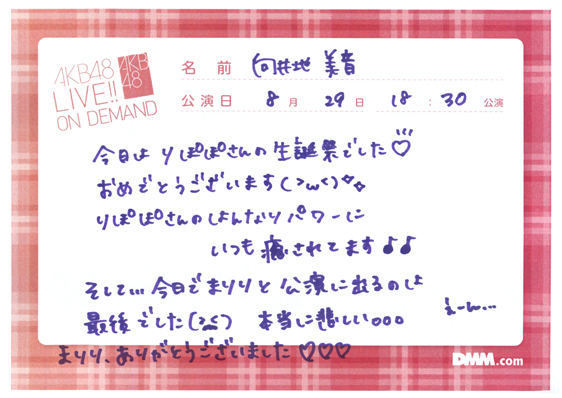 AKB48
LIVE!!
ON DEMAND
AKB
48
名前 向井地 美音
公演日 8月 29日 18:30 公演
今日は りぽぽさんの 生誕祭でした♡
おめでとうございます(>ω<)
りぽぽさんのしょんなりパワーに
いつも 癒されてます♪♪
そして… 今日でまりりと 公演に出るのは
最後でした(><) 本当に悲しい。。。 えーん…
まりり、ありがとうございました♡♡♡
DMM.com